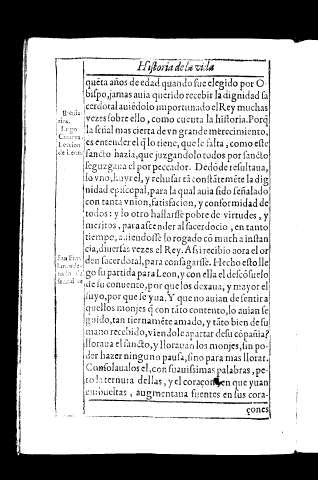 Historia de la vida
quēta años de edad quando fue elegido por O
bispo, jamas auia querido recebir la dignidad sa
cerdotal auiēdolo importunado el Rey muchas
vezes sobre ello, como cuenta la historia. Porq̃
la señal mas cierta de vn grande merecimiento,
es entender el q̃ lo tiene, que le falta, como este
sancto hazia, que juzgandolo todos por sancto
se juzgaua el por peccador. De dōde resultaua,
lo vno, huyr el, y rehusar tā constātemēte la dig
nidad episcopal, para la qual auia sido señalado
con tanta vnion, satisfacion, y conformidad de
todos: y lo otro hallarse pobre de virtudes, y
meritos, para ascender al sacerdocio, en tanto
tiempo, auiendosse lo rogado cō mucha instan
cia, diuersas vezes el Rey. Assi recibio aora el or
den sacerdotal, para consagarse. Hecho esto lle
go su partida para Leon, y con ella el descōsuelo
de su conuento, por que los dexaua, y mayor el
suyo, por que se yua. Y que no auian de sentir a
quellos monjes q̃ con tāto contento, lo auian se
guido, tan tiernamēte amado, y tāto bien de su
mano recebido, viendole apartar de su cōpañia?
lloraua el sancto, y llorauan los monjes, sin po-
der hazer ninguno pausa, sino para mas llorar.
Consolaualos el, con suauissimas palabras, pe-
ro la ternura dellas, y el coraçon en que yuan
embueltas, augmentaua fuentes en sus cora-
çones
Lugo
de Leon.